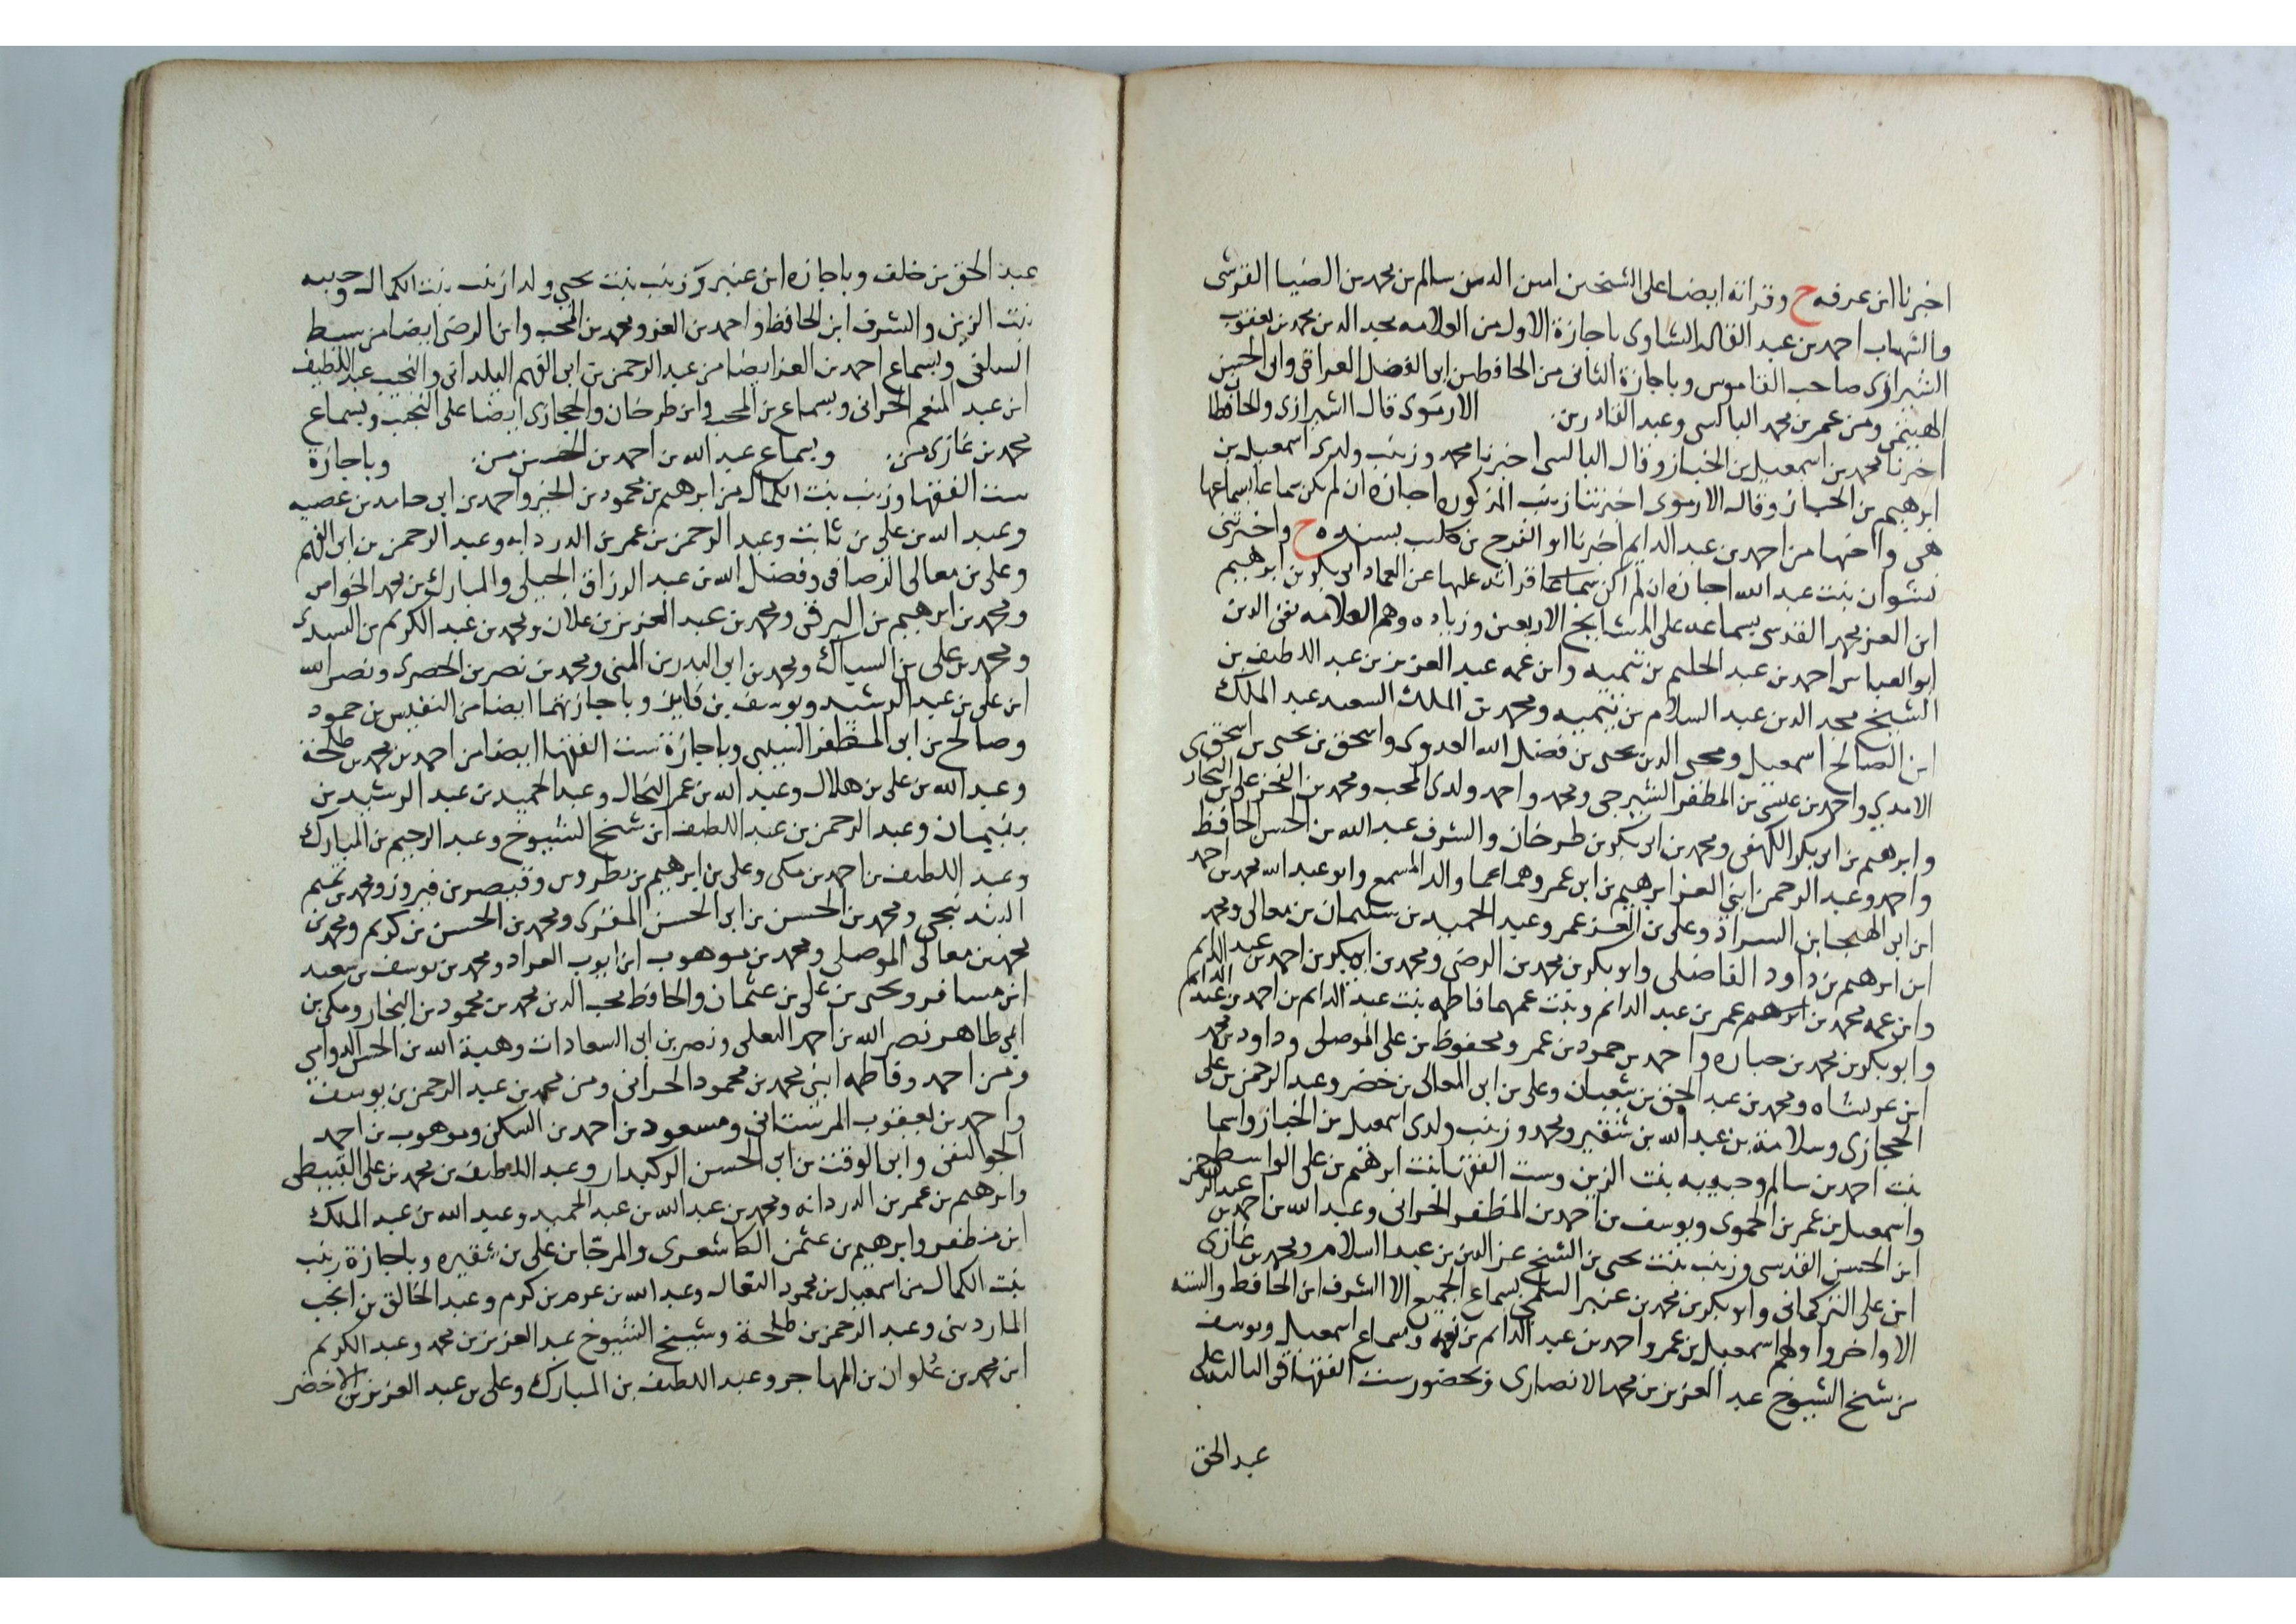 اخبرنا ابن عرفه ح وقراته ايضا على الشيخين امين الدين سالم بن محمد بن الضيا القرشى
والشهاب احمد بن عبد القادر النشاوى باجازة الاول من العلامه مجد الدين محمد بن يعقوب
الشيرازى صاحب القاموس وباجازة الثانى من الحافظين ابى الفضل العراقى وابى الحسن
الهيثمى ومن عمر بن محمد البالسى وعبد القادر بن الارموى قال الشيرازى والحافظا
اخبرنا محمد بن اسمعيل بن الخباز وقال البالسى اخبرنا محمد وزينب ولدى اسمعيل بن
ابرهيم بن الخباز وقال الارموى اخبرتنا زينب المذكوره اجازه ان لم يكن سماعا بسماعها
هى واخيها من احمد بن عبد الدايم اخبرنا ابو الفرج بن كليب بسنده ح واخبرتنى
نشوان بنت عبد الله اجازه ان لم اكن سماعا قراته عليها عن العماد ابى بكر بن ابرهيم
ابن العز محمد القدسى بسماعه على المشايخ الاربعين وزياده وهم العلامه تقى الدين
ابو العباس احمد بن عبد الحليم بن تيميه وابن عمه عبد العزيز بن عبد اللطيف بن
الشيخ مجد الدين عبد السلام بن تيميه ومحمد بن الملك السعيد عبد الملك
ابن الصالح اسمعيل ومحيى الدين يحيى بن فضل الله العدوى واسحق بن يحيى بن اسحق
الامدي واحمد بن عيسى بن المظفر الشيرجى ومحمد واحمد ولدى المحب ومحمد بن الفخر على بن البخار
وابرهيم بن ابى بكر الكهفى ومحمد بن ابى بكر بن طرخان والشرف عبد الله بن الحسن الحافظ
واحمد وعبد الرحمن ابني العز ابرهيم بن ابى عمر وهما عما والد المسمع وابو عبد الله محمد بن احمد
ابن ابى الهيجا ابن السراد وعلى بن العز عمر وعبد الحميد بن سليمان بن معالى ومحمد
ابن ابرهيم بن داود الفاضلى وابو بكر بن محمد بن الرضى ومحمد بن ابى بكر بن احمد بن عبد الدايم
وابن عمه محمد بن ابرهيم عمر بن عبد الدائم وبنت عمهما فاطمه بنت عبد الدائم بن احمد بن عبد الدائم
وابو بكر بن محمد بن حباره واحمد بن حمود بن عمر ومحفوظ بن على الموصلى وداود بن محمد
ابن عربشاه ومحمد بن عبد الحق بن شعبان وعلى بن ابى المعالى بن خضر وعبد الرحمن بن على
الحجازى وسلامة بن عبد الله بن شقير ومحمد وزينب ولدى اسمعيل بن الخباز واسما
بنت احمد بن سالم وحبيبه بنت الزين وست الفقها بنت ابرهيم بن على الواسطى
واسمعيل بن عمر بن الحموى ويوسف بن احمد بن المظفر الحرانى وعبد الله بن احمد بن
ابن الحسن القدسى وزينب بنت يحيى بن الشيخ عز الدين بن عبد السلام ومحمد بن غازى
ابن على التركمانى وابو بكر بن محمد بن عنبر السلمى بسماع الجميع الا الشرف ابن الحافظ والستة
الاواخر واولهم اسمعيل بن عمر واحمد بن عبد الدائم بن نعمه وبسماع اسمعيل ويوسف
من شيخ الشيوخ عبد العزيز بن محمد الانصارى وبحضور ست الفقها فى الثالثة على
عبد الحق
عبد الحق بن خلف وباجازه ابن عنبر وزينب بنت يحيى ولدا زينب بنت الكمال وحبيبه
بنت الزين والشرف ابن الحافظ واحمد بن العز ومحمد بن المحب وابن الرضى ايضا من سبط
السلفى وبسماع احمد بن العز ايضا من عبد الرحمن بن ابى الفهم اليلدانى والنجيب عبد اللطيف
ابن عبد المنعم الحرانى وبسماع بن المحب وابن طرخان والحجازى ايضا على النجيب وبسماع
محمد بن غازى من وبسماع عبد الله بن احمد بن الحسن من وباجازة
ست الفقها وزينب بنت الكمال من ابرهيم بن محمود بن الخير واحمد بن ابى حامد بن عصيه
وعبد الله بن على بن ثابت وعبد الرحمن بن عمر بن الدردابه وعبد الرحمن بن ابى الفهم
وعلى بن معالى الرصافى وفضل الله بن عبد الرزاق الجيلى والمبارك بن محمد الخواص
ومحمد بن ابرهيم بن البرقى ومحمد بن عبد العزيز بن علان ومحمد بن عبد الكريم بن السيدى
ومحمد بن على بن السباك ومحمد بن ابى البدر بن المنى ومحمد بن نصر بن الحصرى ونصر الله
ابن على بن عبد الرشيد ويوسف بن فايز وباجازتهما ايضا من النفيس بن حمود
وصالح بن ابى المظفر السيبى وباجازة ست الفقها ايضا من احمد بن محمد بن طلحة
وعبد الله بن على بن هلال وعبد الله بن عمر النخال وعبد الحميد بن عبد الرشيد بن
بنيمان وعبد الرحمن بن عبد اللطيف ابن شيخ الشيوخ وعبد الرحيم بن المبارك
وعبد اللطيف بن احمد بن مكى وعلى بن ابرهيم بن بطروس وقيصر بن فيروز ومحمد بن تميم
البندنيجى ومحمد بن الحسن بن ابى الحسن المقرى ومحمد بن الحسن بن كريم ومحمد بن
محمد بن معالى الموصلى ومحمد بن موهوب ابن ايوب العراد ومحمد بن يوسف بن سعيد
ابن مسافر ويحيى بن على بن عثمان والحافظ محب الدين محمد بن محمود بن النجار ومكى بن
ابي طاهر نصر الله بن احمد البعلى ونصر بن ابى السعادات وهبة الله بن الحسن الدوامي
ومن احمد وفاطمه ابني محمد بن محمود الحرانى ومن محمد بن عبد الرحمن بن يوسف
واحمد بن يعقوب المرستانى ومسعود بن احمد بن السكن وموهوب بن احمد
الجواليقى وابن الوقت بن ابى الحسن الركبدار وعبد اللطيف بن محمد بن على القبيطى
وابرهيم بن عمر بن الدردانه ومحمد بن عبد الله بن عبد الحميد وعبد الله بن عبد الملك
ابن مظفر وابرهيم بن عثمن الكاشعرى والمرجا بن على بن شقيره وباجازة زينب
بنت الكمال من اسمعيل بن محمود البقال وعبد الله بن عرمر بن كرم وعبد الخالق بن انجب
الماردينى وعبد الرحمن بن طلحة وشيخ الشيوخ عبد العزيز بن محمد وعبد الكريم
ابن محمد بن علوان بن المهاجر وعبد اللطيف بن المبارك وعلى بن عبد العزيز بن الاخضر